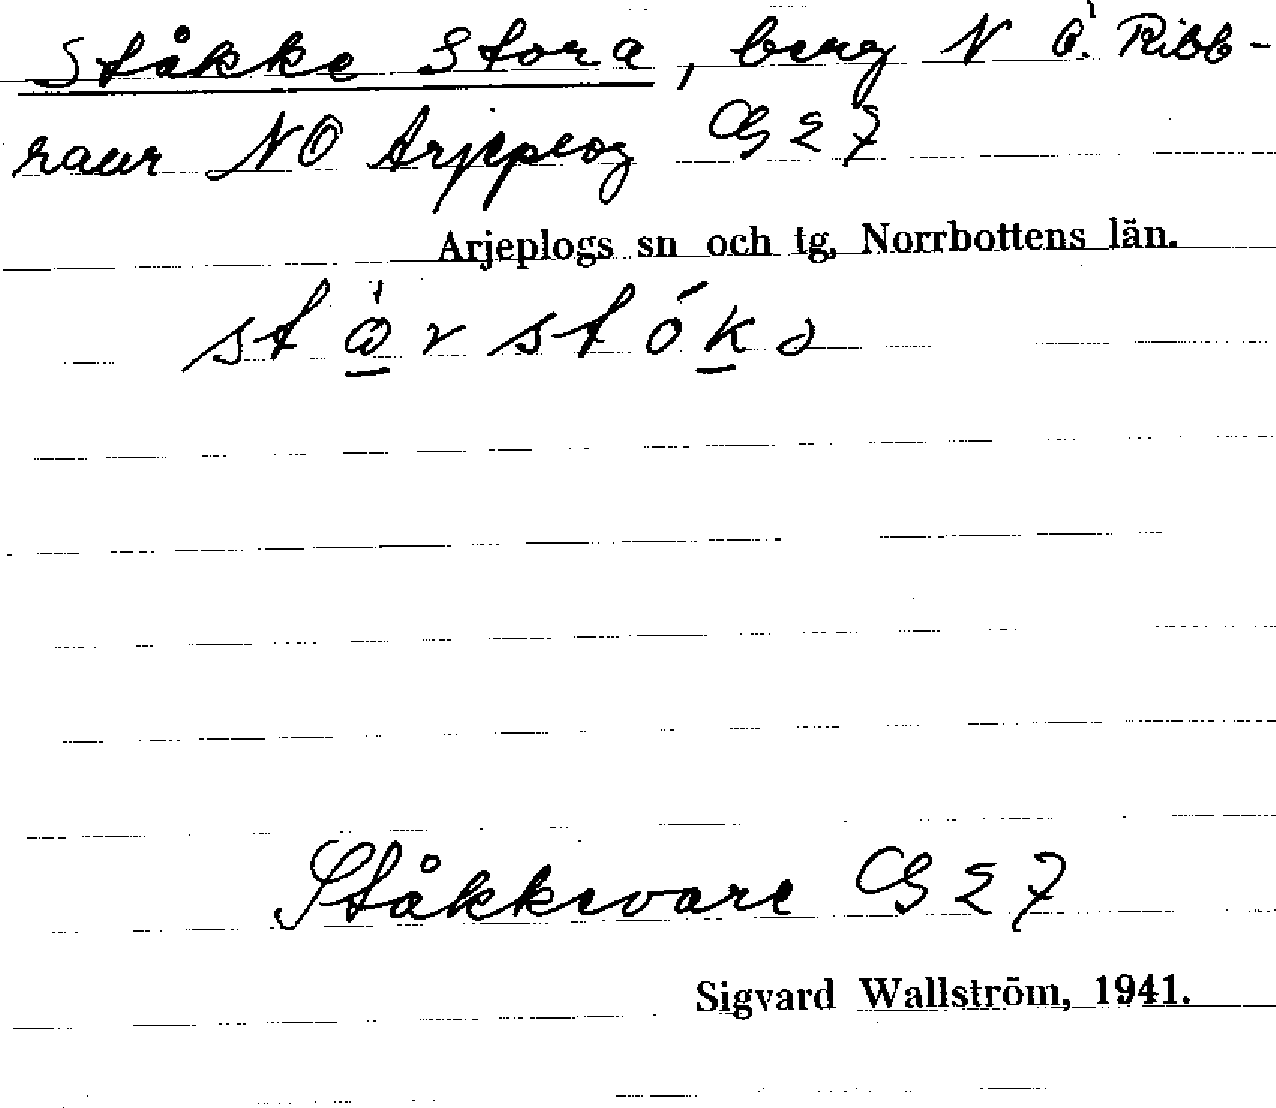 Ståkke Stora, berg N Ö. Ribb-
raur NO Arjeplog GS 27
Arjeplogs sn och tg, Norrbottens län.
Ståkkevare GS 27
Sigvard Wallström, 1941.